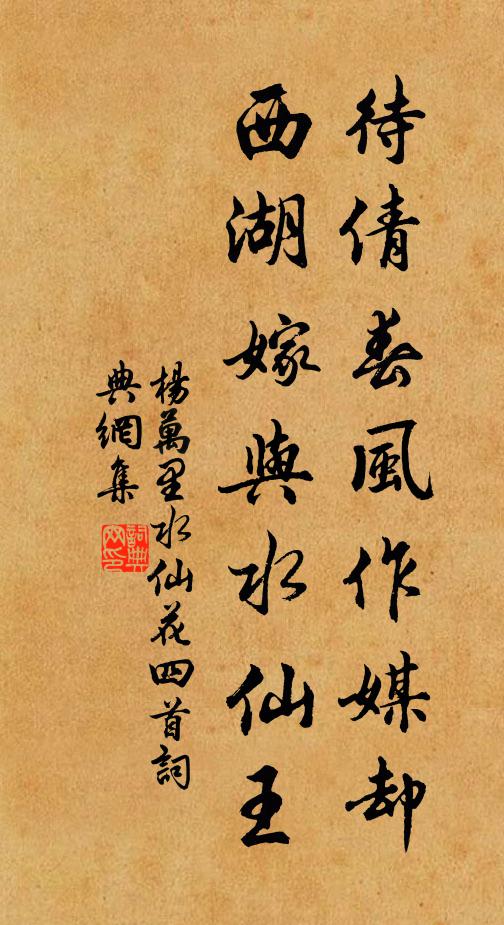 待倩春風作媒却
西湖嫁與水仙王
楊萬里水仙花四首詞
典網集
詞典網印